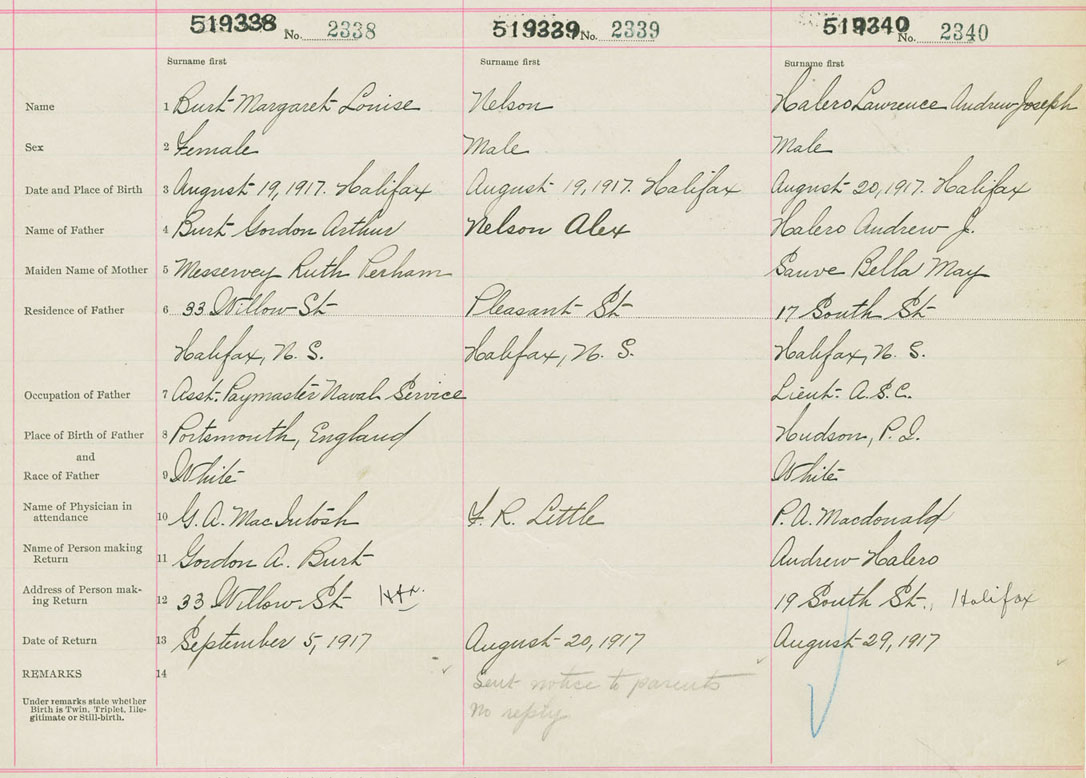 519338 No. 2338 519339 No. 2339 519340 No. 2340
Surname first Surname first Surname first
Name 1 Burt Margaret Louise Nelson Halero Lawrence Andrew Joseph
Sex 2 Female Male Male
Date and Place of Birth 3 August 19, 1917. Halifax August 19, 1917. Halifax August 20, 1917. Halifax
Name of Father 4 Burt Gordon Arthur Nelson Alex Halero Andrew J.
Maiden Name of Mother 5 Messervey Ruth Perham Sauve Bella May
Residence of Father 6 33 Willow St Pleasant St 17 South St
Halifax, N. S. Halifax, N. S. Halifax, N. S.
Occupation of Father 7 Asst. Paymaster Naval Service Lieut. A. S. C.
Place of Birth of Father 8 Portsmouth, England Hudson, P. Q.
and
Race of Father 9 White White
Name of Physician in
attendance 10 G. A. MacIntosh F. R. Little P. A. Macdonald
Name of Person making
Return 11 Gordon A. Burt Andrew Halero
Address of Person mak-
ing Return 12 33 Willow St Hfx. 19 South St., Halifax
Date of Return 13 September 5, 1917 August 20, 1917 August 29, 1917
REMARKS 14 Sent notice to parents
No reply
Under remarks state whether
Birth is Twin, Triplet, Ille-
gitimate or Still-birth.